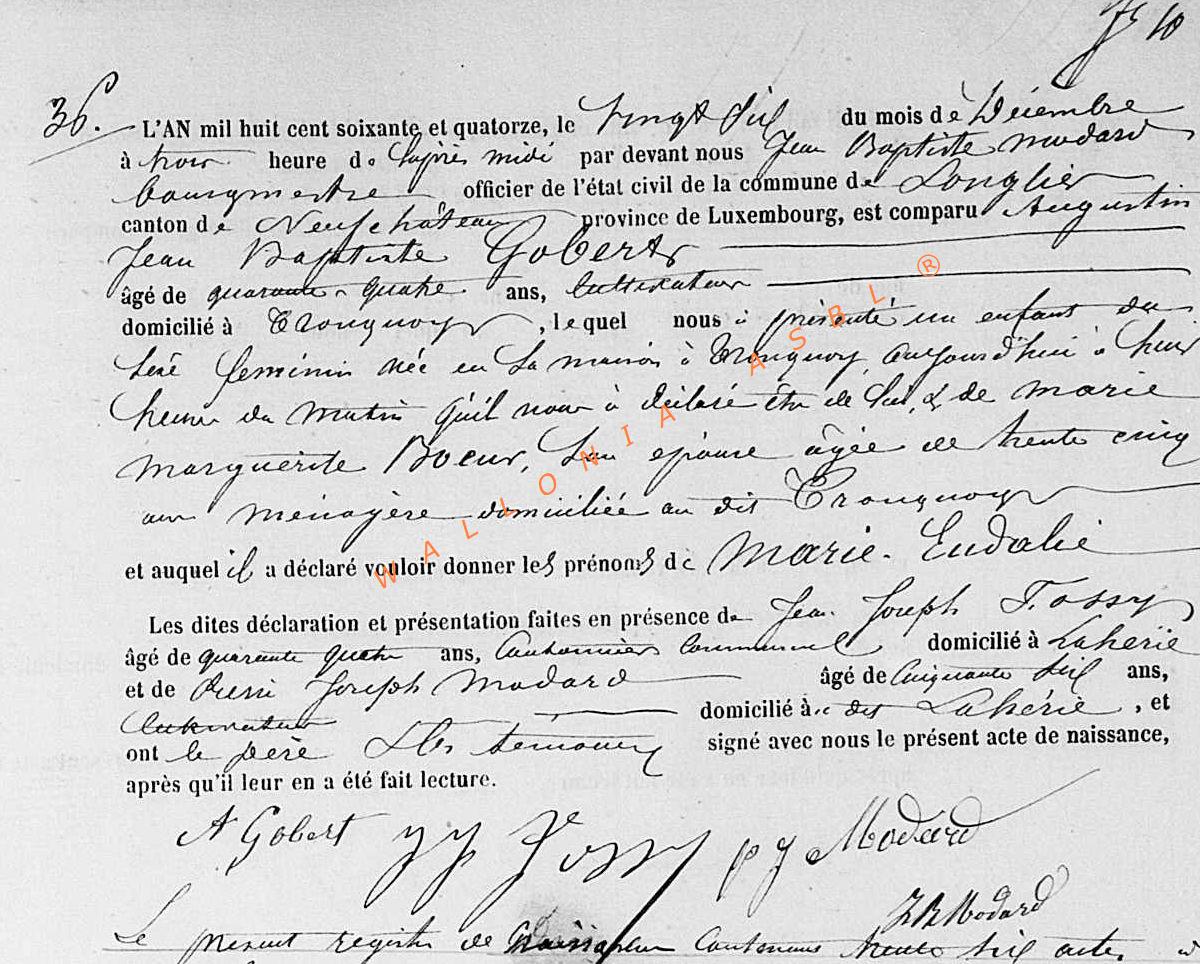 10
36. L'AN mil huit cent soixante et quatorze, le vingt six du mois de Décembre
à trois heure de l'après midi par devant nous Jean Baptiste Modard
bourgmestre officier de l'état civil de la commune de Longlier
canton de Neufchâteau province de Luxembourg, est comparu Augustin
Jean Baptiste Gobert
âgé de quarante quatre ans, cultivateur
domicilié à Tronquoy, lequel nous à présenté un enfant du
sexe féminin née en sa maison à Tronquoy, aujourd'hui à
heures du matin qu'il nous à déclaré être de lui, & de marie
marguerite Boeur, son épouse âgée de trente cinq
ans ménagère domiciliée au dit Tronquoy
et auquel il a déclaré vouloir donner les prénoms de Marie-Eudalie
Les dites déclaration et présentation faites en présence de Jean Joseph Fossy
âgé de quarante quatre ans, cantonnier communal domicilié à Lahérie
et de Pierre Joseph Modard âgé de cinquante six ans,
cultivateur domicilié à dit Lahérie, et
ont le père & les témoins signé avec nous le présent acte de naissance,
après qu'il leur en a été fait lecture.
A Gobert JJ Fossy p J Modard
JB Modard
Le présent registre de naissance contenant trente six actes, a
WALLONIA ASBL ®